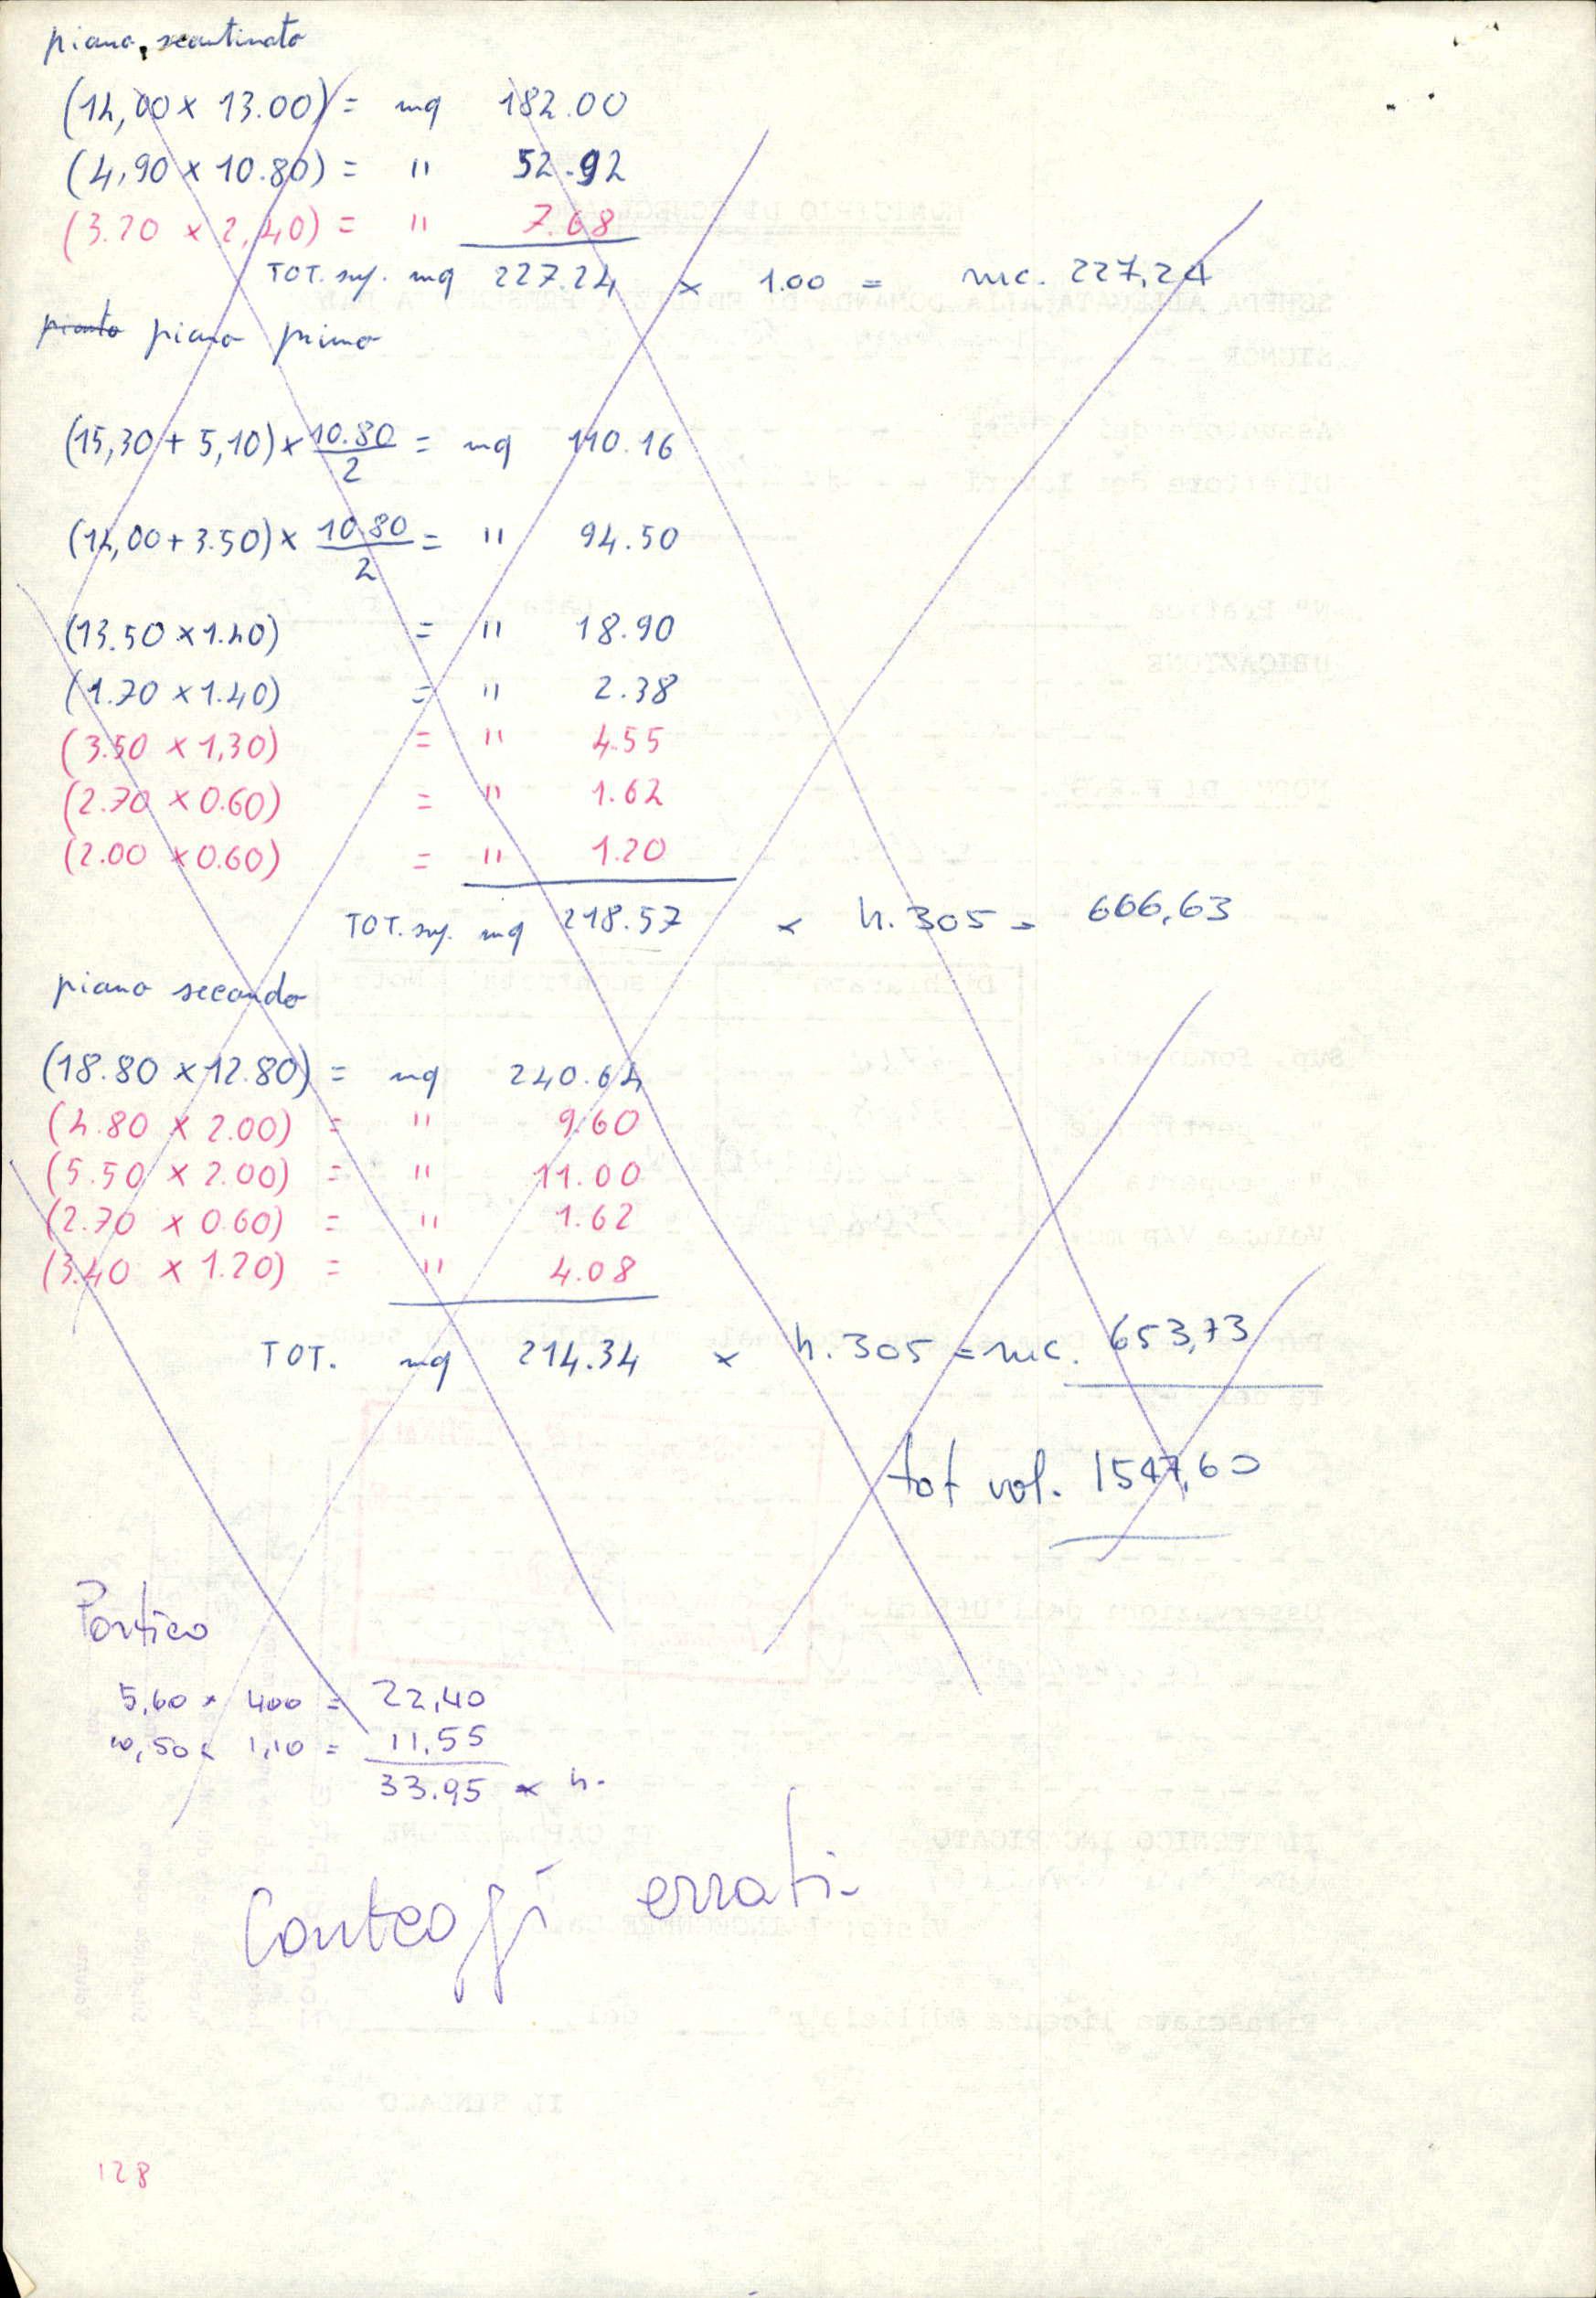 piano scantinato
(14,00 x 13.00) = mq 182.00
(4,90 x 10.80) = " 52.92
(3.20 x 2,40) = " 7.68
TOT. sup. mq 227.24 x 1.00 = mc. 227,24
pianto piano primo
(15,30 + 5,10) x 10.80/2 = mq 110.16
(14,00 + 3.50) x 10.80/2 = " 94.50
(13.50 x 1.40) = " 18.90
(1.70 x 1.40) = " 2.38
(3.50 x 1,30) = " 4.55
(2.70 x 0.60) = " 1.62
(2.00 x 0.60) = " 1.20
TOT. sup. mq 218.57 x h. 305 = 666,63
piano secondo
(18.80 x 12.80) = mq 240.64
(4.80 x 2.00) = " 9.60
(5.50 x 2.00) = " 11.00
(2.70 x 0.60) = " 1.62
(3.40 x 1.20) = " 4.08
TOT. mq 214.34 x h. 305 = mc. 653,73
tot vol. 1547,60
Portico
5,60 x 400 = 22,40
10,50 x 1,10 = 11.55
33.95 x h.
Conteggi errati-
128